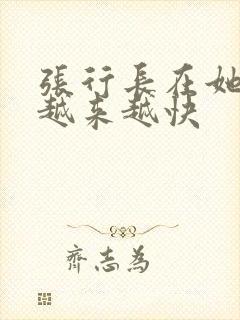 張行長在她
越来越快
齊志為